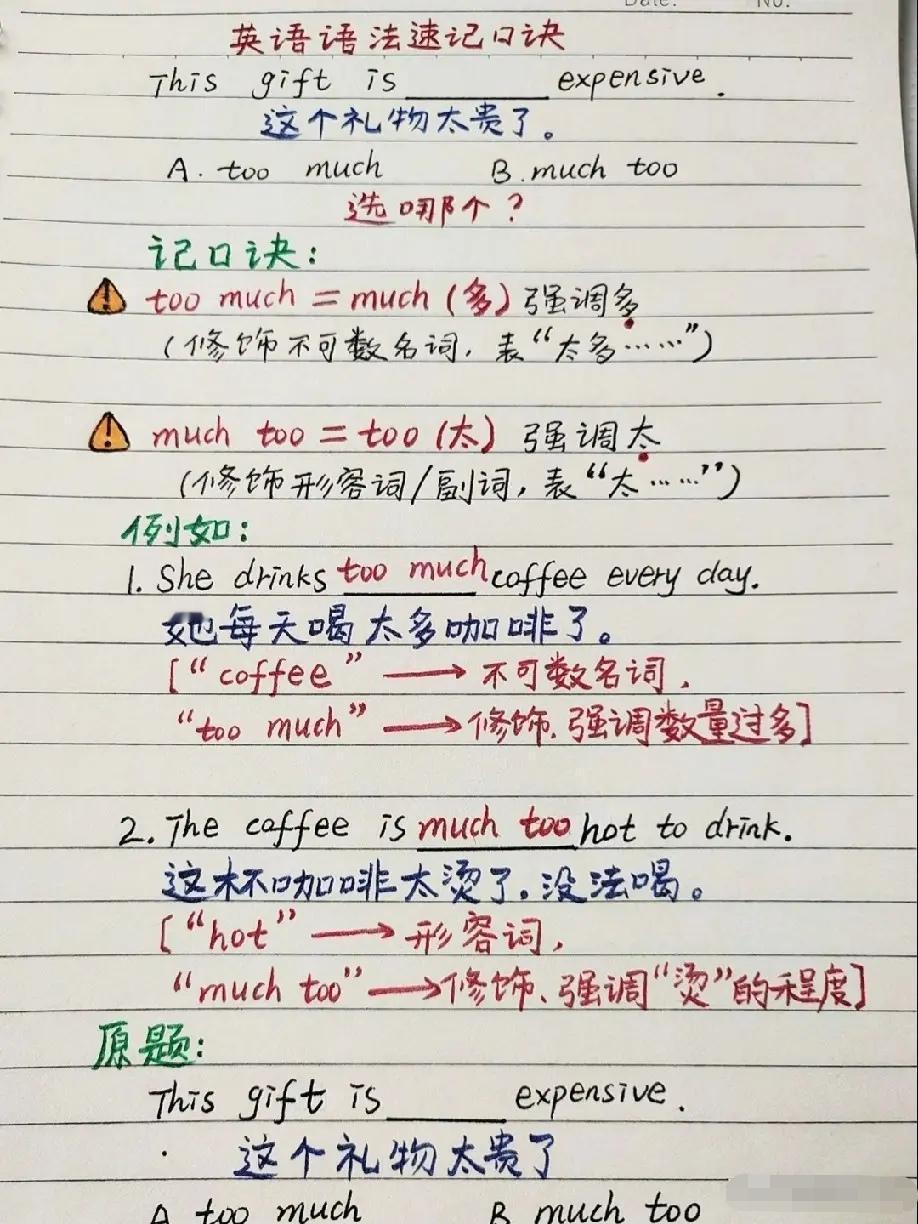 Date: No.
英语语法速记口诀
This gift is ______ expensive.
这个礼物太贵了。
A. too much B. much too
选哪个？
记口诀：
too much = much (多) 强调多
(修饰不可数名词, 表“太多……”)
much too = too (太) 强调太
(修饰形容词/副词, 表“太……”)
例如：
1. She drinks too much coffee every day.
她每天喝太多咖啡了。
[“coffee” → 不可数名词,
“too much” → 修饰、强调数量过多]
2. The coffee is much too hot to drink.
这杯咖啡太烫了,没法喝。
[“hot” → 形容词,
“much too” → 修饰、强调“烫”的程度]
原题：
This gift is ______ expensive.
这个礼物太贵了
A too much B much too